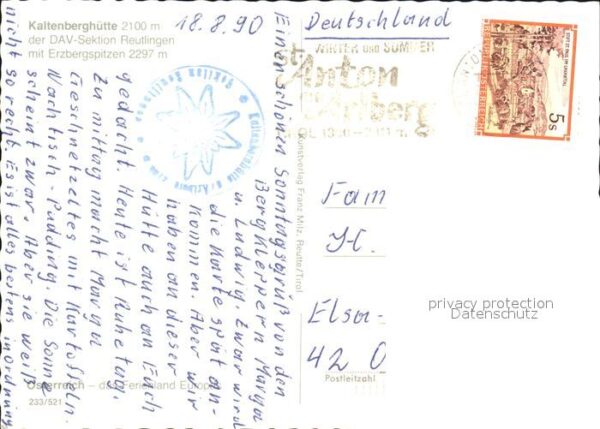 Kaltenberghütte 2100 m
der DAV-Sektion Reutlingen
mit Erzbergspitzen 2297 m
18.8.90
Einen schönen Sonntagsgruß von den
Bergklexxern Marga
u. Ludwig. Zwar wird
die Karte spät an-
kommen. Aber wir
haben an dieser
Hütte auch an Euch
gedacht. Heute ist Ruhetag,
zu mittag macht Marga
Geschnetzeltes mit Kartoffeln.
Nachtisch-Pudding. Die Sonne
scheint zwar. Aber sie weiß
nicht so recht. Es ist alles bestens in Ordnung
Österreich – das Ferienland Europas
233/521
Kunstverlag Franz Milz, Reutte/Tirol
Deutschland
WINTER und SOMMER
St. Anton
a. Arlberg
TIROL 1300-2811 m
5 S
Fam
H.
Elsa-
42 0
Postleitzahl
privacy protection
Datenschutz